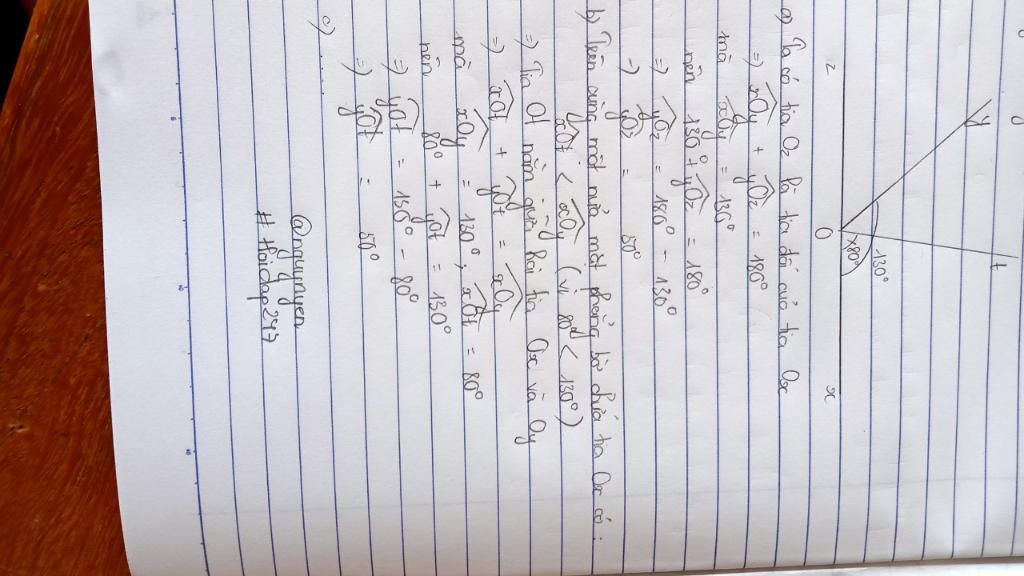 y
t
130°
80°
z
O
x
a) Ta có tia Oz là tia đối của tia Ox
=) xOy + yOz = 180°
mà xOy = 130°
nên 130° + yOz = 180°
=) yOz = 180° - 130°
=) yOz = 50°
b) Trên cùng một nửa mặt phẳng bờ chứa tia Ox có :
xOt < xOy (vì 80° < 130°)
=) Tia Ot nằm giữa hai tia Ox và Oy
=) xOt + yOt = xOy
mà xOy = 130° ; xOt = 80°
nên 80° + yOt = 130°
=) yOt = 130° - 80°
=) yOt = 50°
c) . . . . .
@nguynyen
# Hoidap247